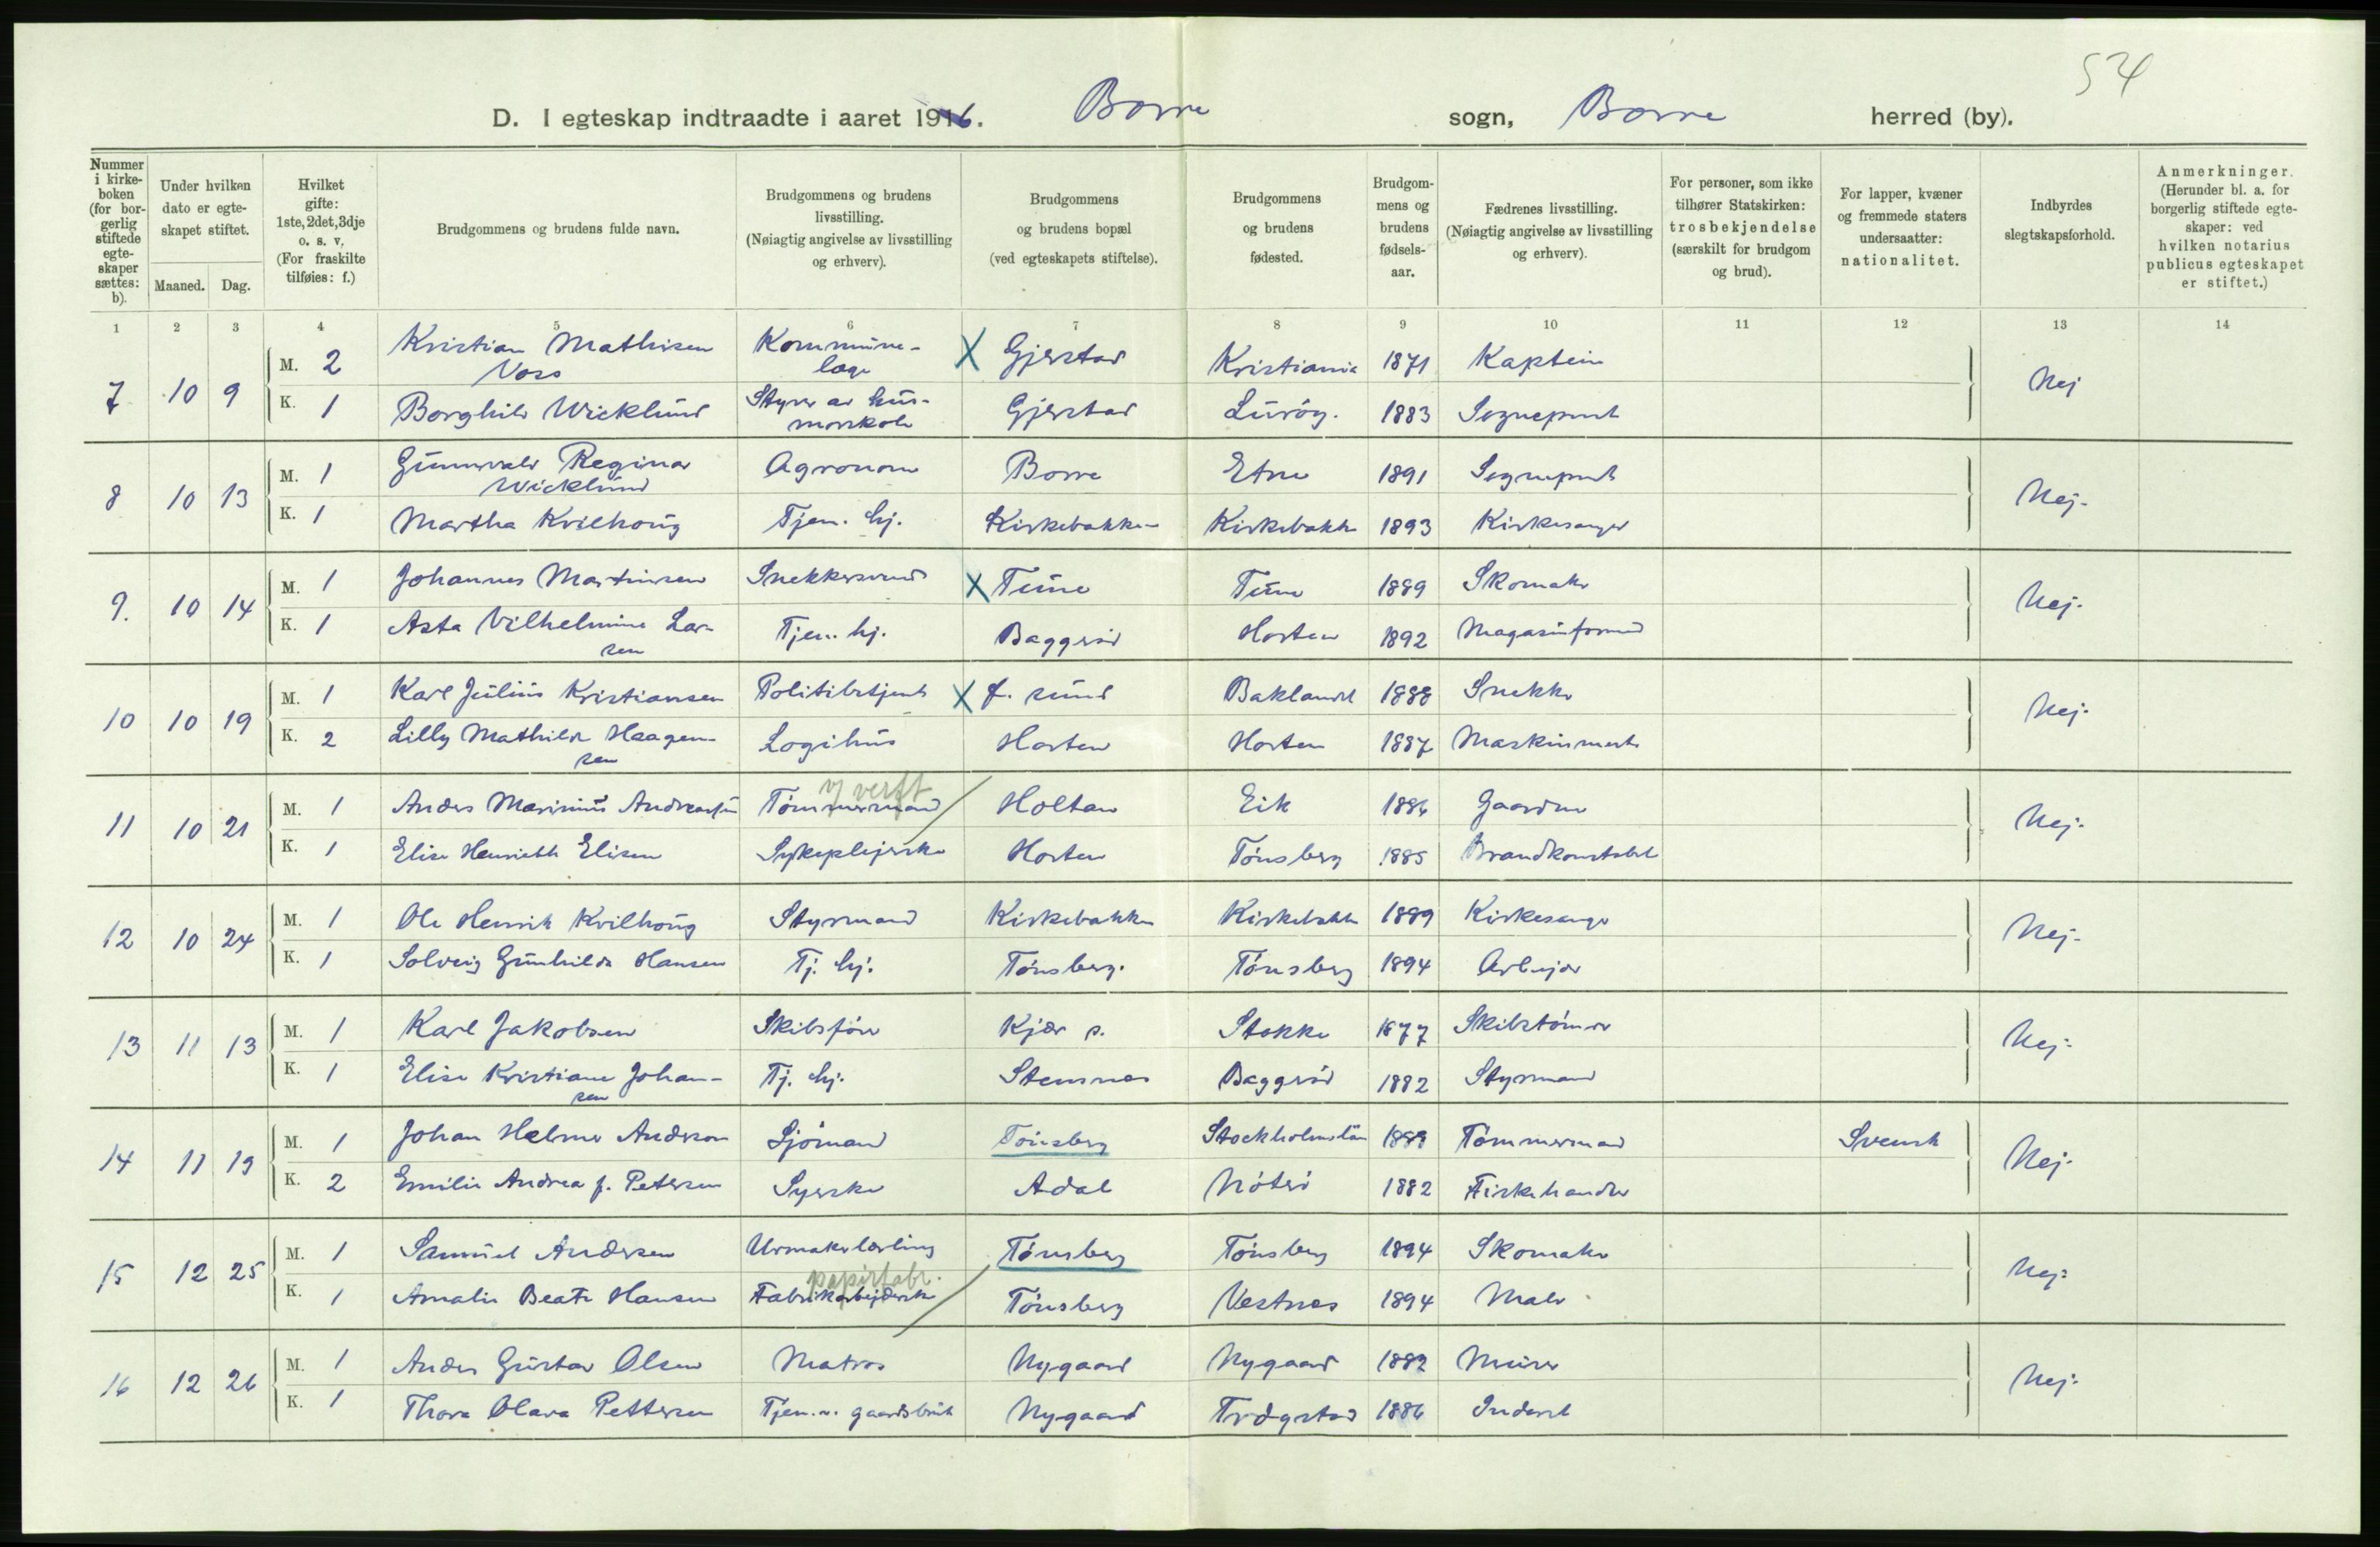 54
D. I egteskap indtraadte i aaret 1916. Borre sogn, Borre herred (by).
Nummer i kirkeboken (for borgerlig stiftede egteskaper sættes: b).
Under hvilken dato er egteskapet stiftet.
Maaned. Dag.
Hvilket gifte: 1ste, 2det, 3dje o. s. v. (For fraskilte tilføies: f.)
Brudgommens og brudens fulde navn.
Brudgommens og brudens livsstilling. (Nøiagtig angivelse av livsstilling og erhverv).
Brudgommens og brudens bopæl (ved egteskapets stiftelse).
Brudgommens og brudens fødested.
Brudgommens og brudens fødselsaar.
Fædrenes livsstilling. (Nøiagtig angivelse av livsstilling og erhverv).
For personer, som ikke tilhører Statskirken: trosbekjendelse (særskilt for brudgom og brud).
For lapper, kvæner og fremmede staters undersaatter: nationalitet.
Indbyrdes slegtskapsforhold.
Anmerkninger. (Herunder bl. a. for borgerlig stiftede egteskaper: ved hvilken notarius publicus egteskapet er stiftet.)
1 2 3 4 5 6 7 8 9 10 11 12 13 14
7 10 9 M. 2 Kristian Mathisen Voss Kommunelæge X Gjerstad Kristiania 1871 Kaptein Nej
K. 1 Borghild Wicklund Styrer av husmorskole Gjerstad Lurøy. 1883 Sogneprest
8 10 13 M. 1 Gunnvald Reginar Wicklund Agronom Borre Etne 1891 Sogneprest Nej.
K. 1 Martha Kvilhoug Tjen. hj. Kirkebakken Kirkebakk 1893 Kirkesanger
9. 10 14 M. 1 Johannes Martinsen Snekkersvend X Tune Tune 1889 Skomaker Nej.
K. 1 Asta Vilhelmine Larsen Tjen. hj. Baggerød Horten 1892 Magasinformand
10 10 19 M. 1 Karl Julius Kristiansen Politibetjent X f. sund Baklandet 1888 Snekker Nej.
K. 2 Lilly Mathilde Haagensen Logihus Horten Horten 1887 Maskinmester
11 10 21 M. 1 Anders Marinius Andreassen Tømmermand verft Holtan Eik 1886 Gaardbr Nej.
K. 1 Elise Henriette Elisen Sykepleierske Horten Tønsberg 1885 Brandkonstabel
12 10 24 M. 1 Ole Henrik Kvilhoug Styrmand Kirkebakken Kirkebakk 1889 Kirkesanger Nej.
K. 1 Solveig Gunhilda Hansen Tj. hj. Tønsberg. Tønsberg 1894 Arbejder
13 11 13 M. 1 Karl Jakobsen Skibsfører Kjær s. Stokke 1877 Skibstømrer Nej.
K. 1 Elise Kristiane Johansen Tj. hj. Stensnes Baggerød 1882 Styrmand
14 11 19 M. 1 Johan Helmer Anderson Sjømand Tønsberg Stockholmslän 1888 Tømmermand Svensk Nej.
K. 2 Emilie Andrea f. Petersen Syerske Adal Nøterø 1882 Fiskehandler
15 12 25 M. 1 Samuel Andersen Urmakerlærling Tønsberg Tønsberg 1894 Skomaker Nej.
K. 1 Amalie Beate Hansen Fabrikarbejderske papirfabr. Tønsberg Vestnes 1894 Maler
16 12 26 M. 1 Anders Gustav Olsen Matros Nygaard Nygaard 1882 Murer Nej.
K. 1 Thora Olava Pettersen Tjen. v. gaardsbruk Nygaard Trøgstad 1886 Inderst